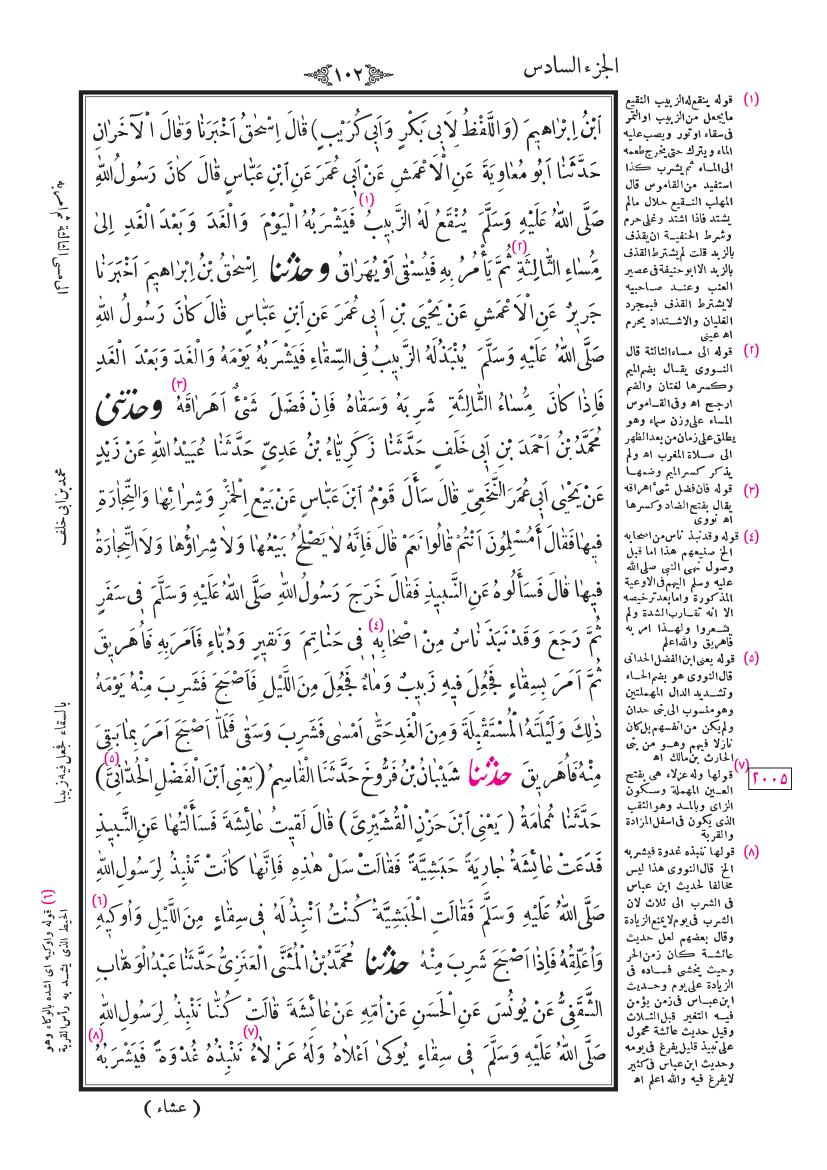 الجزء السادس
١٠٢
ابْنُ اِبْرَاهِيمَ (وَاللَّفْظُ لِاَبِى بَكْرٍ وَاَبِى كُرَيْبٍ) قَالَ اِسْحٰقُ اَخْبَرَنَا وَقَالَ الْآخَرَانِ
حَدَّثَنَا اَبُو مُعَاوِيَةَ عَنِ الْاَعْمَشِ عَنْ اَبِى عُمَرَ عَنِ ابْنِ عَبَّاسٍ قَالَ كَانَ رَسُولُ اللّٰهِ
صَلَّى اللّٰهُ عَلَيْهِ وَسَلَّمَ يُنْقَعُ لَهُ الزَّبِيبُ (١) فَيَشْرَبُهُ الْيَوْمَ وَالْغَدَ وَبَعْدَ الْغَدِ اِلٰى
مَسَاءِ الثَّالِثَةِ (٢) ثُمَّ يَأْمُرُ بِهِ فَيُسْقٰى اَوْ يُهَرَاقُ وحدثنا اِسْحٰقُ بْنُ اِبْرَاهِيمَ اَخْبَرَنَا
جَرِيرٌ عَنِ الْاَعْمَشِ عَنْ يَحْيَى بْنِ اَبِى عُمَرَ عَنِ ابْنِ عَبَّاسٍ قَالَ كَانَ رَسُولُ اللّٰهِ
صَلَّى اللّٰهُ عَلَيْهِ وَسَلَّمَ يُنْبَذُ لَهُ الزَّبِيبُ فِى السِّقَاءِ فَيَشْرَبُهُ يَوْمَهُ وَالْغَدَ وَبَعْدَ الْغَدِ
فَاِذَا كَانَ مَسَاءُ الثَّالِثَةِ شَرِبَهُ وَسَقَاهُ فَاِنْ فَضَلَ شَىْءٌ اَهَرَاقَهُ (٣) وحدثنى
مُحَمَّدُ بْنُ اَحْمَدَ بْنِ اَبِى خَلَفٍ حَدَّثَنَا زَكَرِيَّاءُ بْنُ عَدِىٍّ حَدَّثَنَا عُبَيْدُ اللّٰهِ عَنْ زَيْدٍ
عَنْ يَحْيٰى اَبِى عُمَرَ النَّخَعِىِّ قَالَ سَأَلَ قَوْمٌ ابْنَ عَبَّاسٍ عَنْ بَيْعِ الْخَمْرِ وَشِرَائِهَا وَالتِّجَارَةِ
فِيهَا فَقَالَ أَمُسْلِمُونَ اَنْتُمْ قَالُوا نَعَمْ قَالَ فَاِنَّهُ لَا يَصْلُحُ بَيْعُهَا وَلَا شِرَاؤُهَا وَلَا التِّجَارَةُ
فِيهَا قَالَ فَسَأَلُوهُ عَنِ النَّبِيذِ فَقَالَ خَرَجَ رَسُولُ اللّٰهِ صَلَّى اللّٰهُ عَلَيْهِ وَسَلَّمَ فِى سَفَرٍ
ثُمَّ رَجَعَ وَقَدْ نَبَذَ نَاسٌ مِنْ اَصْحَابِهِ (٤) فِى حَنَاتِمَ وَنَقِيرٍ وَدُبَّاءٍ فَاَمَرَ بِهِ فَاُهَرِيقَ
ثُمَّ اَمَرَ بِسِقَاءٍ فَجُعِلَ فِيهِ زَبِيبٌ وَمَاءٌ فَجُعِلَ مِنَ اللَّيْلِ فَاَصْبَحَ فَشَرِبَ مِنْهُ يَوْمَهُ
ذٰلِكَ وَلَيْلَتَهُ الْمُسْتَقْبِلَةَ وَمِنَ الْغَدِ حَتّٰى اَمْسٰى فَشَرِبَ وَسَقٰى فَلَمَّا اَصْبَحَ اَمَرَ بِمَا بَقِىَ
مِنْهُ فَاُهَرِيقَ حدثنا شَيْبَانُ بْنُ فَرُّوخَ حَدَّثَنَا الْقَاسِمُ (يَعْنِى ابْنَ الْفَضْلِ الْحُدَّانِىَّ) (٥)
حَدَّثَنَا ثُمَامَةُ (يَعْنِى ابْنَ حَزْنٍ الْقُشَيْرِىَّ) قَالَ لَقِيتُ عَائِشَةَ فَسَأَلْتُهَا عَنِ النَّبِيذِ
فَدَعَتْ عَائِشَةُ جَارِيَةً حَبَشِيَّةً فَقَالَتْ سَلْ هٰذِهِ فَاِنَّهَا كَانَتْ تَنْبِذُ لِرَسُولِ اللّٰهِ
صَلَّى اللّٰهُ عَلَيْهِ وَسَلَّمَ فَقَالَتِ الْحَبَشِيَّةُ كُنْتُ اَنْبِذُ لَهُ فِى سِقَاءٍ مِنَ اللَّيْلِ وَاُوكِيهِ (٦)
وَاُعَلِّقُهُ فَاِذَا اَصْبَحَ شَرِبَ مِنْهُ حدثنا مُحَمَّدُ بْنُ الْمُثَنَّى الْعَنَزِىُّ حَدَّثَنَا عَبْدُ الْوَهَّابِ
الثَّقَفِىُّ عَنْ يُونُسَ عَنِ الْحَسَنِ عَنْ اُمِّهِ عَنْ عَائِشَةَ قَالَتْ كُنَّا نَنْبِذُ لِرَسُولِ اللّٰهِ
صَلَّى اللّٰهُ عَلَيْهِ وَسَلَّمَ فِى سِقَاءٍ يُوكٰى اَعْلَاهُ وَلَهُ عَزْلَاءُ (٧) نَنْبِذُهُ غُدْوَةً فَيَشْرَبُهُ (٨)
( عشاء )
(١) قوله ينقع له الزبيب النقيع
مايجعل من الزبيب او التمر
فى سقاء او تور ويصب عليه
الماء ويترك حتى يخرج طعمه
الى الماء ثم يشرب كذا
استفيد من القاموس قال
المهلب النقيع حلال مالم
يشتد فاذا اشتد وغلى حرم
وشرط الحنفية ان يقذف
بالزبد قلت لم يشترط القذف
بالزبد الا ابو حنيفة فى عصير
العنب وعند صاحبيه
لا يشترط القذف فبمجرد
الغليان والاشتداد يحرم
اه عينى
(٢) قوله الى مساء الثالثة قال
النووى يقال بضم الميم
وكسرها لغتان والضم
ارجح اه وفى القاموس
المساء على وزن سماء وهو
يطلق على زمان من بعد الظهر
الى صلاة المغرب اه ولم
يذكر كسر الميم وضمها
(٣) قوله فان فضل شئ اهراقه
يقال بفتح الضاد وكسرها
اه نووى
(٤) قوله وقد نبذ ناس من اصحابه
الخ صنيعهم هذا اما قبل
وصول نهى النبى صلى الله
عليه وسلم اليهم فى الاوعية
المذكورة واما بعد ترخيصه
الا انه تقارب الشدة ولم
يشعروا ولهذا امر به
فاهريق والله اعلم
(٥) قوله يعنى ابن الفضل الحدانى
قال النووى هو بضم الحاء
وتشديد الدال المهملتين
وهو منسوب الى بنى حدان
ولم يكن من انفسهم بل كان
نازلا فيهم وهو من بنى
الحارث بن مالك اه
(٧) قولها وله عزلاء هى بفتح
٢٠٠٥
العين المهملة وسكون
الزاى وبالمد وهو الثقب
الذى يكون فى اسفل المزادة
والقربة
(٨) قولها ننبذه غدوة فيشربه
الخ قال النووى هذا ليس
مخالفا لحديث ابن عباس
فى الشرب الى ثلاث لان
الشرب فى يوم لا يمنع الزيادة
وقال بعضهم لعل حديث
عائشة كان زمن الحر
وحيث يخشى فساده فى
الزيادة على يوم وحديث
ابن عباس فى زمن يؤمن
فيه التغير قبل الثلاث
وقيل حديث عائشة محمول
على نبيذ قليل يفرغ فى يومه
وحديث ابن عباس فى كثير
لا يفرغ فيه والله اعلم اه
محمد بن ابى خلف
بالسقاء فجعل فيه زبيبا
(٦) قوله واوكيه اى اشده بالوكاء وهو
الخيط الذى يشد به رأس القربة